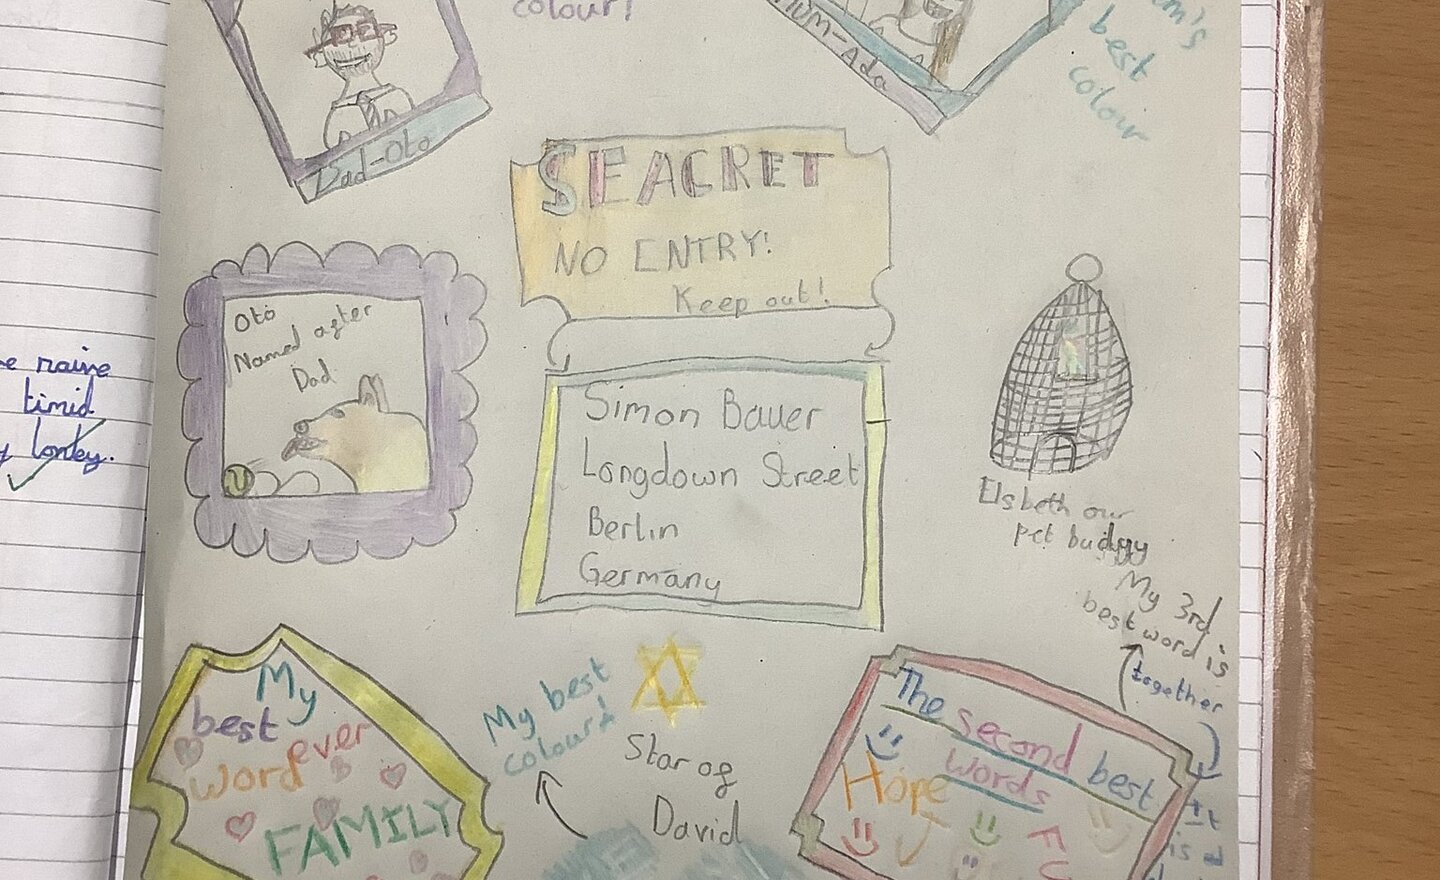 colour!
Mum-Ada
best
colour
Dad-Oto
SEACRET
NO ENTRY!
Keep out!
Oto
Named after
Dad
Simon Bauer
Longdown Street
Berlin
Germany
Elsbeth our
pet budgy
timid
lonley.
My 3rd
best word is
together
My
best
ever
word
FAMILY
My best
colour!
Star of
David
The second best
words
Hope
It
is a